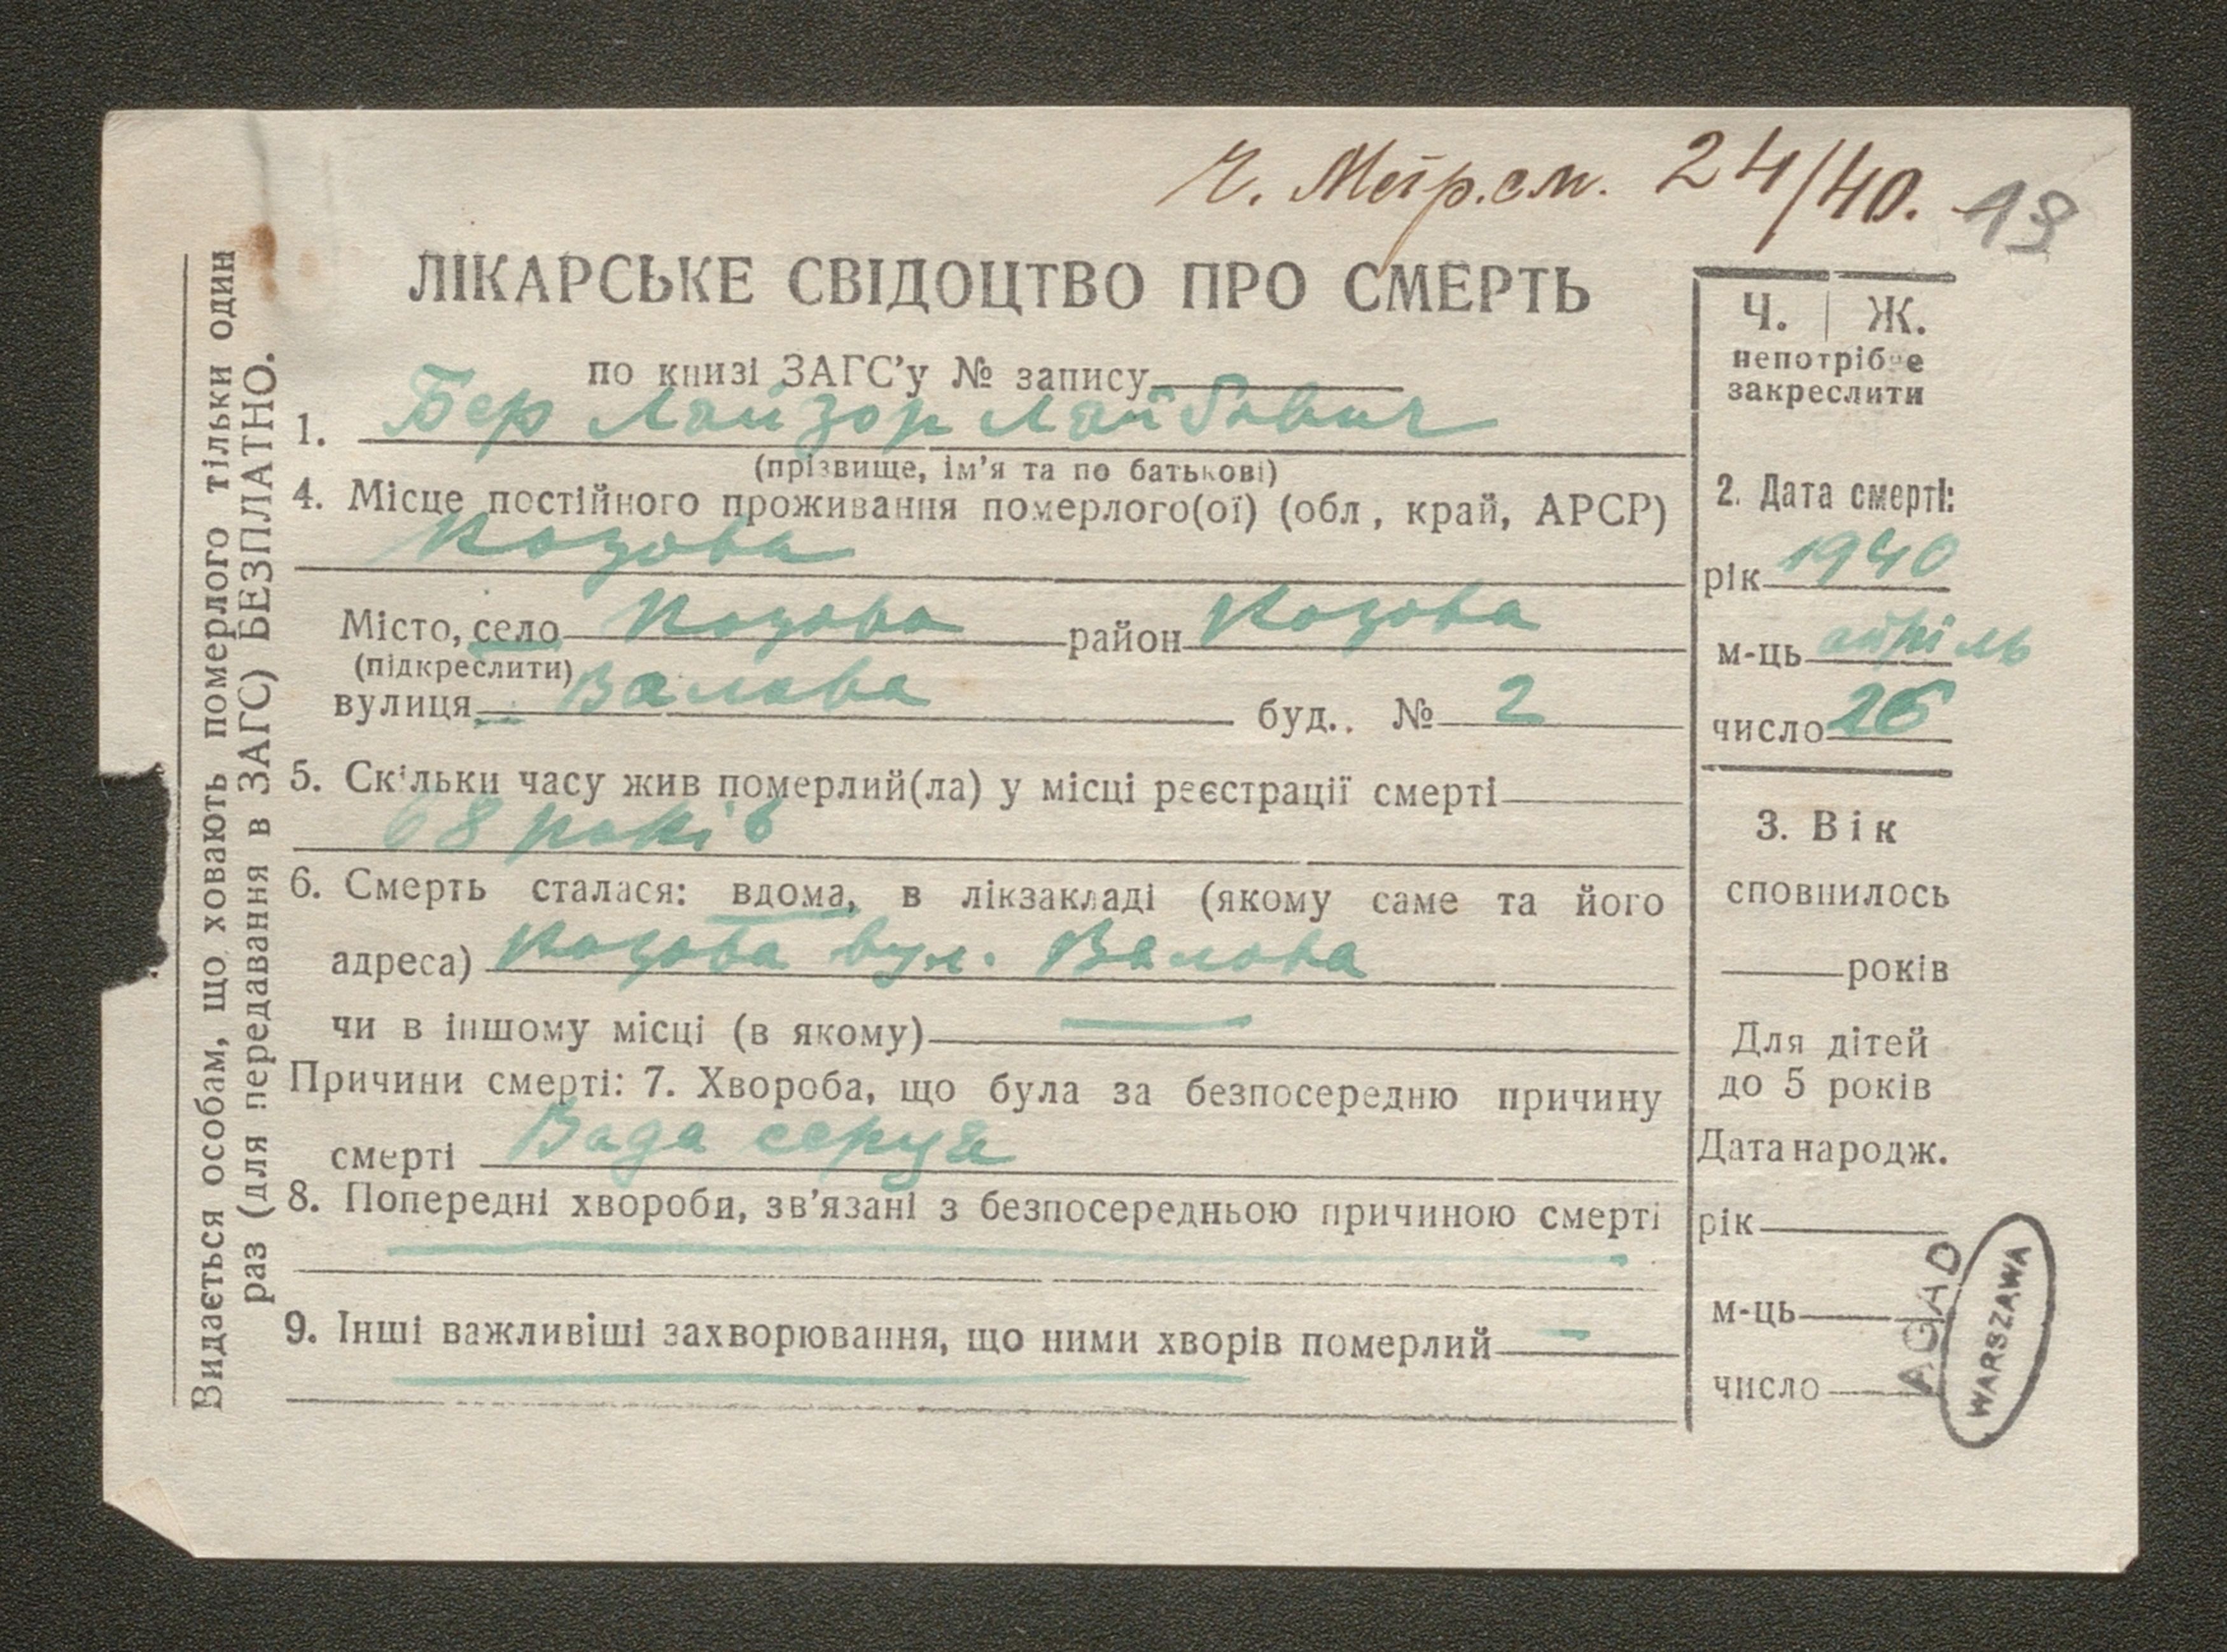 Ч. Метр. см. 24/40. 19
ЛІКАРСЬКЕ СВІДОЦТВО ПРО СМЕРТЬ
по книзі ЗАГС'у № запису
1. Бер Лайзор Лайбович
(прізвище, ім'я та по батькові)
4. Місце постійного проживання померлого(ої) (обл, край, АРСР)
Козова
Місто, село Козова район Козова
(підкреслити)
вулиця Валова буд.. № 2
5. Скільки часу жив померлий(ла) у місці реєстрації смерті
68 років
6. Смерть сталася: вдома, в лікзакладі (якому саме та його
адреса) Козова вул. Валова
чи в іншому місці (в якому)
Причини смерті: 7. Хвороба, що була за безпосередню причину
смерті Вада серця
8. Попередні хвороби, зв'язані з безпосередньою причиною смерті
9. Інші важливіші захворювання, що ними хворів померлий
Ч. | Ж.
непотрібне
закреслити
2. Дата смерті:
рік 1940
м-ць апріль
число 26
3. Вік
сповнилось
років
Для дітей
до 5 років
Дата народж.
рік
м-ць
число
Видається особам, що ховають померлого тільки один
раз (для передавання в ЗАГС) БЕЗПЛАТНО.
AGAD
WARSZAWA